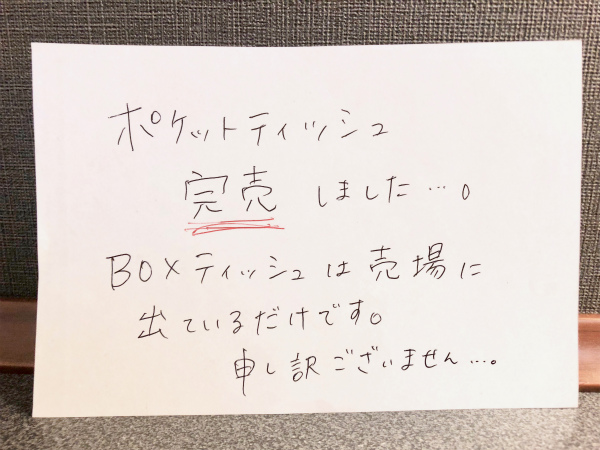 ポケットティッシュ
完売しました…。
BOXティッシュは売場に
出ているだけです。
申し訳ございません…。